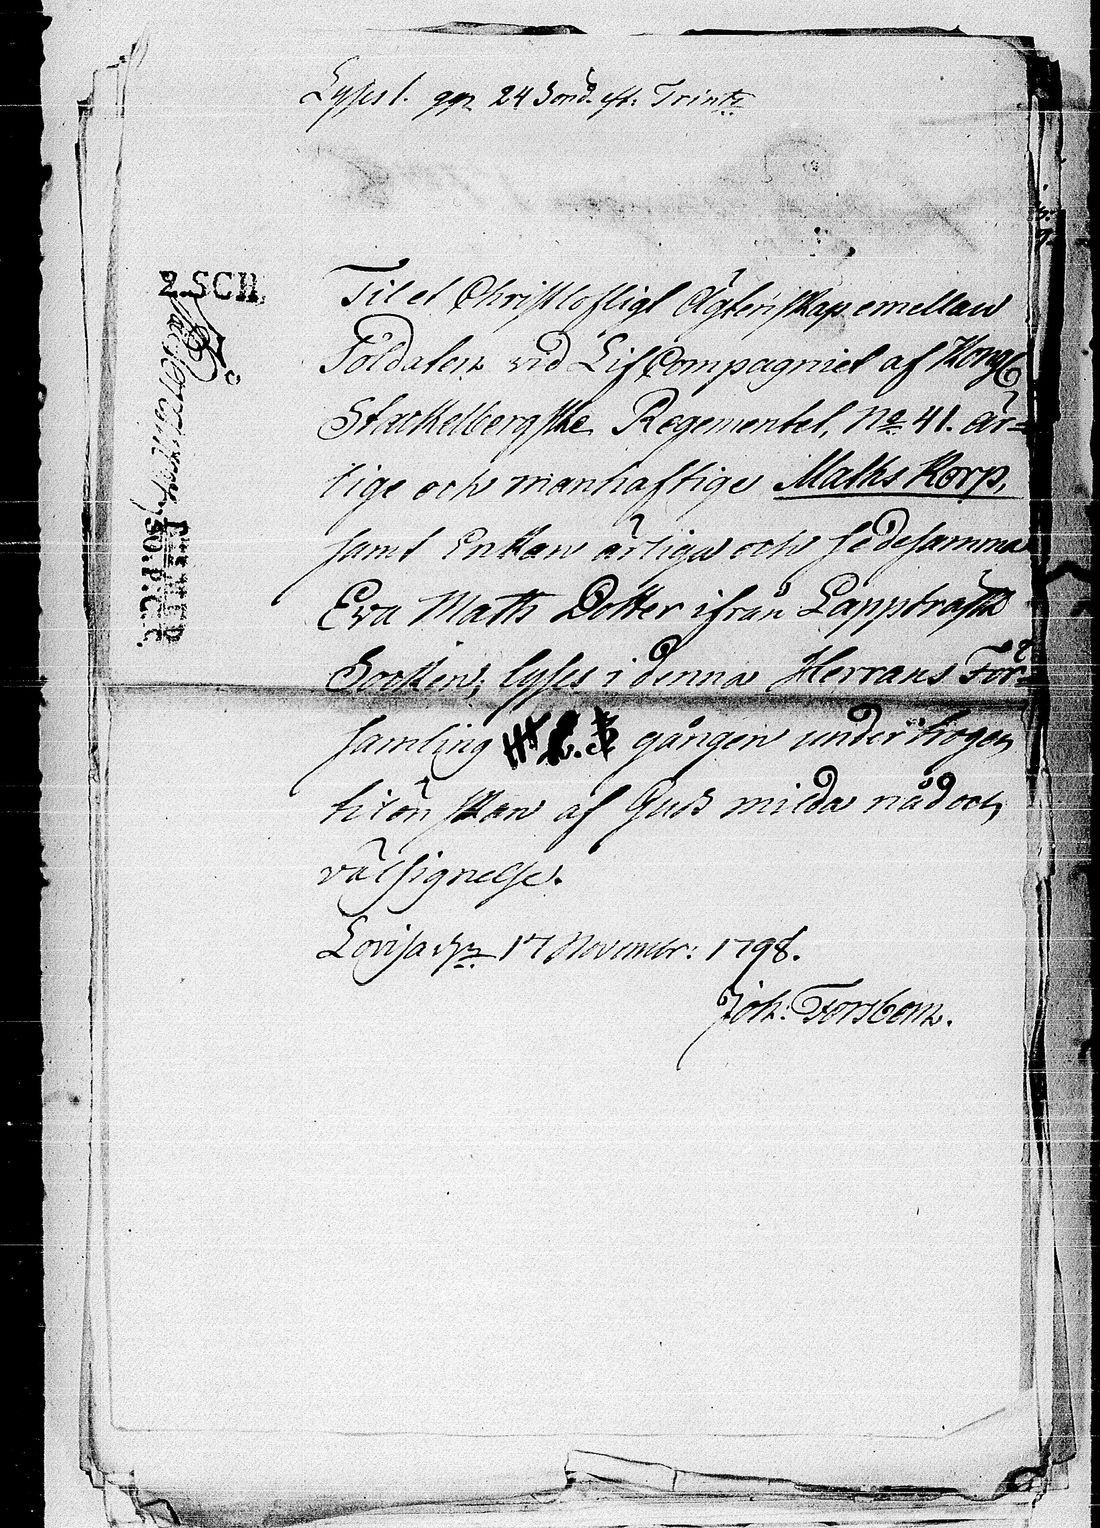 Lyses 1. ggn 24 Sönd. eft: Trinit:
2. SCH.
Til et Christlofligt Ägtenskap emellan
Soldaten vid Lif Compagniet af Kongl
Stackelbergske Regementet, No 41. är=
lige och manhaftige Maths Korp,
samt Enkan ärliga och sedesamma
Eva Maths Dotter ifrån Lappträsk
Socken; lyses i denna Herrans För=
samling gången under trogen
tilönskan af Guds milda nåd och
välsignelse.
Lovisa d. 17 November: 1798.
Joh: Forsbom.